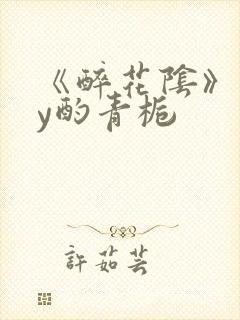 《醉花陰》
y酌青梔
許茹芸